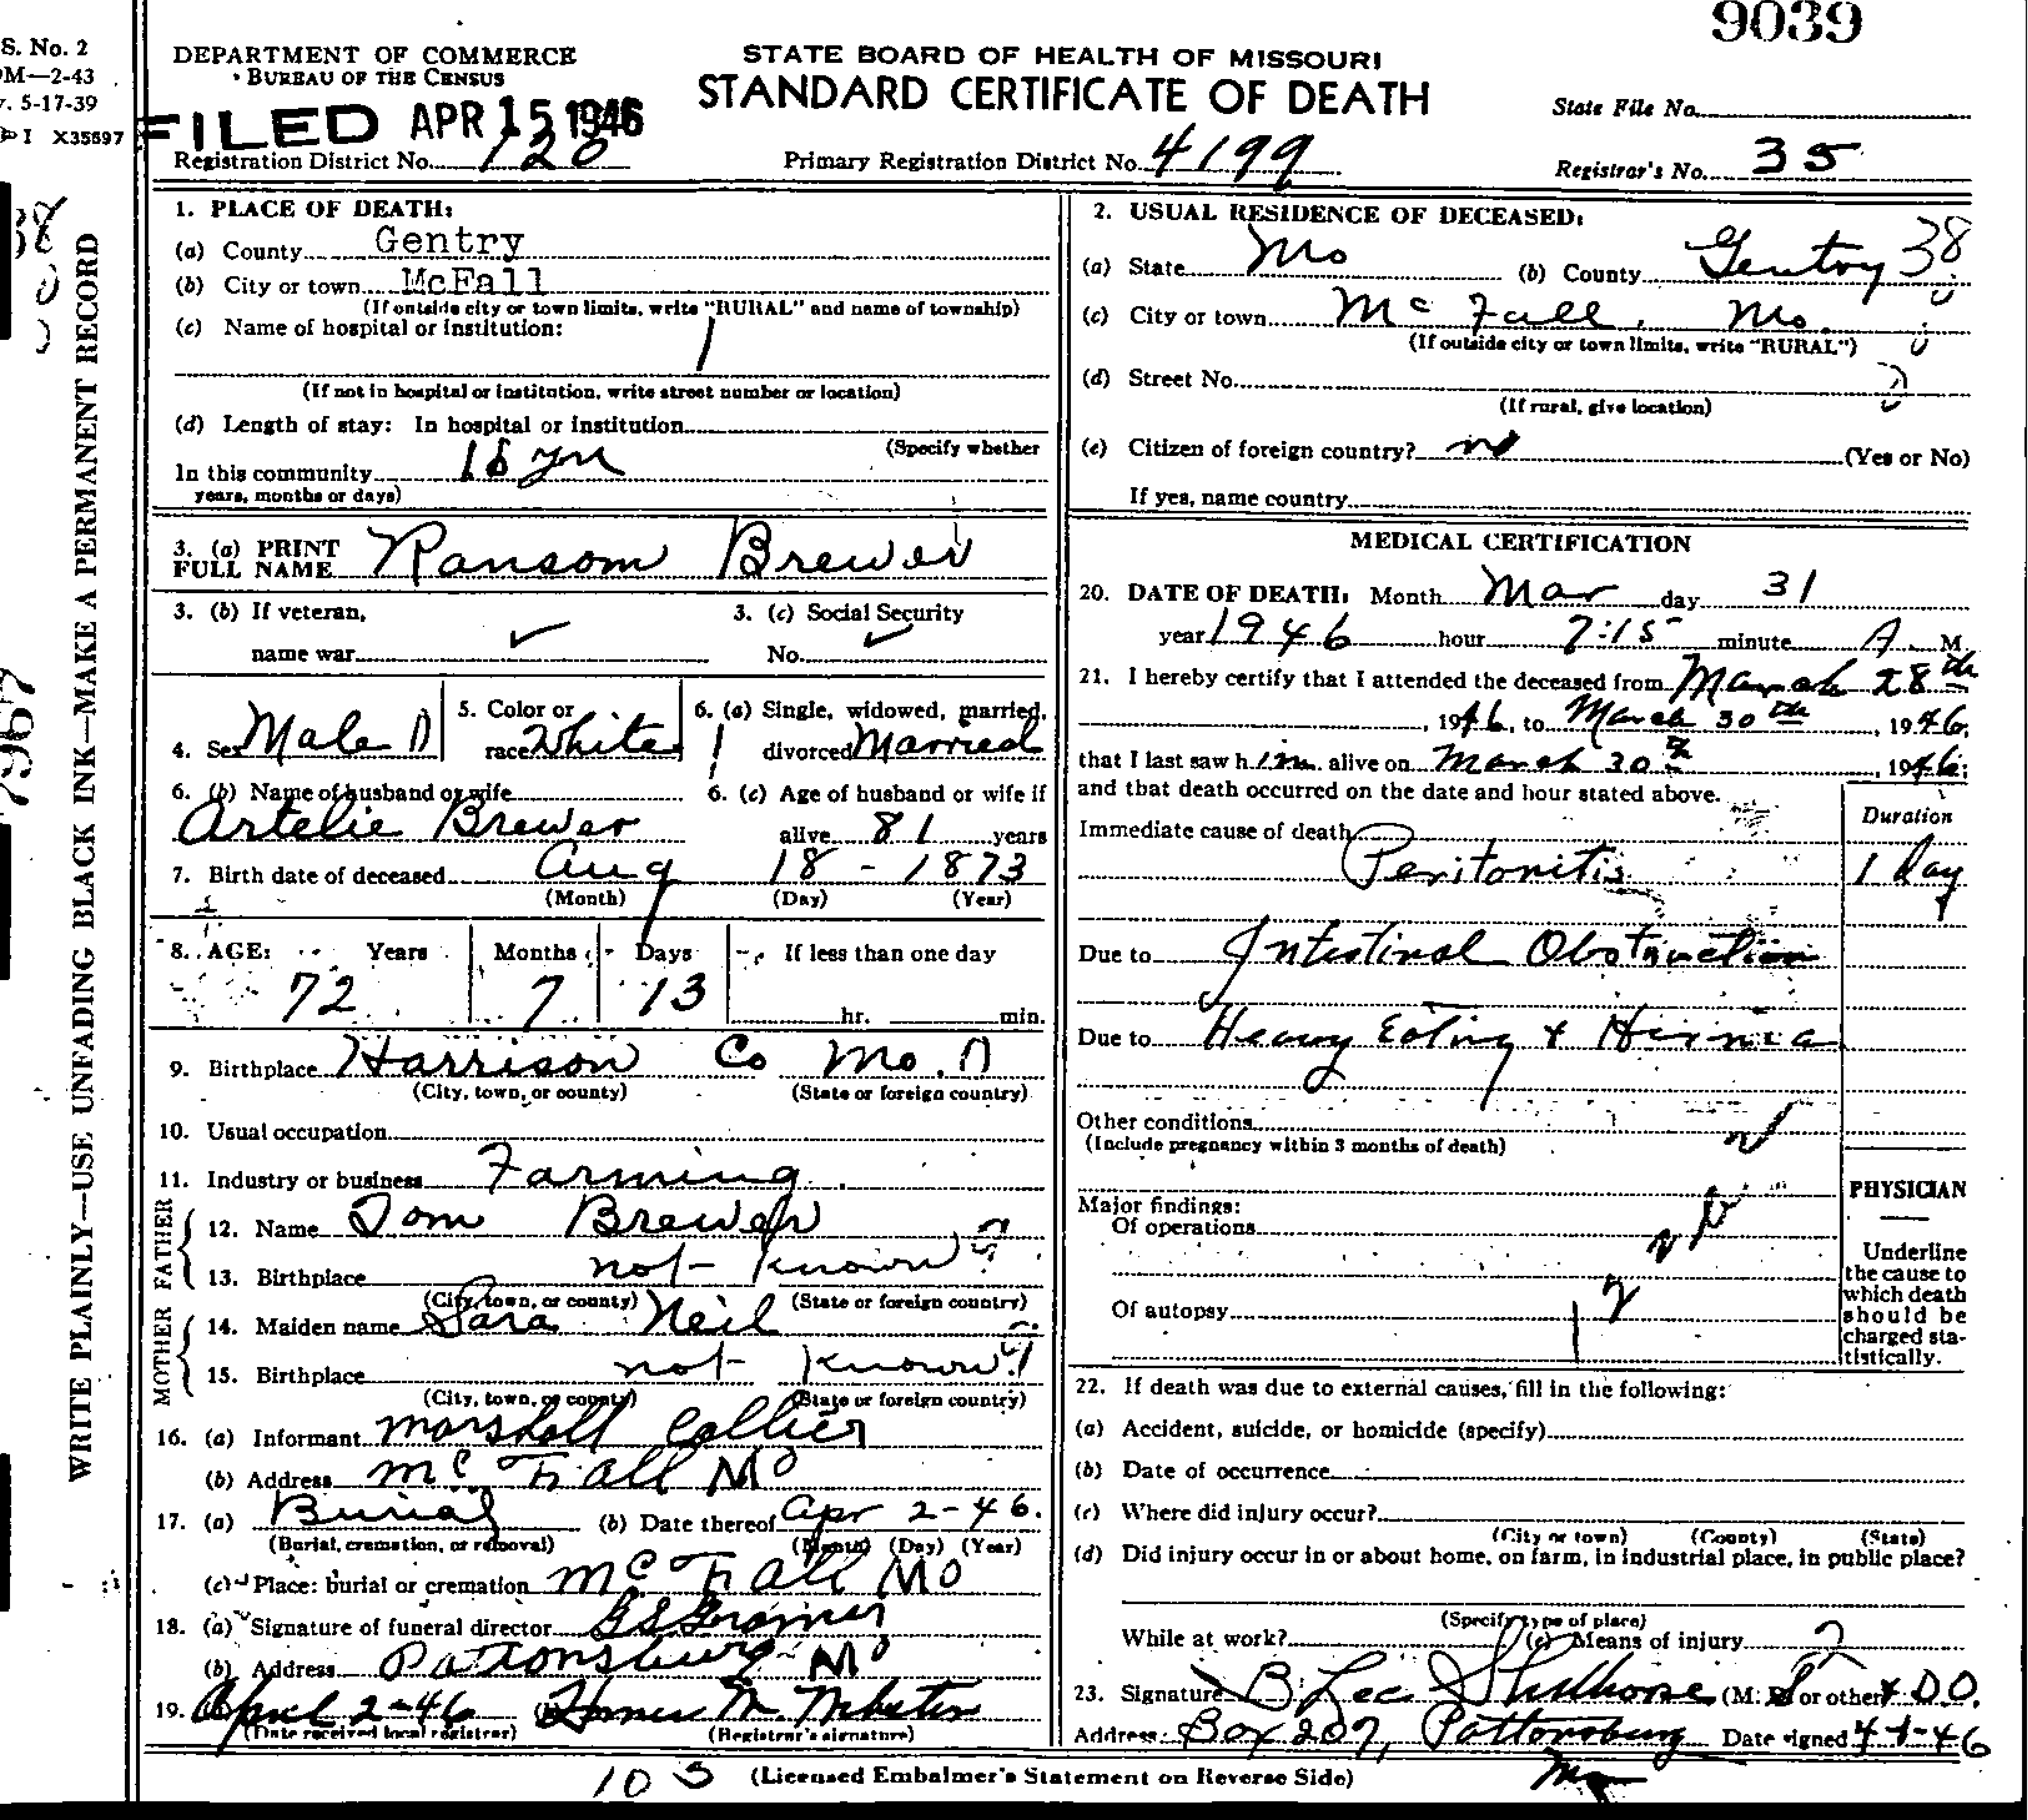 9039
S. No. 2
M—2-43
5-17-39
I X35697
DEPARTMENT OF COMMERCE
BUREAU OF THE CENSUS
STATE BOARD OF HEALTH OF MISSOURI
STANDARD CERTIFICATE OF DEATH
State File No.
FILED APR 15 1946
Registration District No. 120
Primary Registration District No. 4199
Registrar's No. 35
WRITE PLAINLY—USE UNFADING BLACK INK—MAKE A PERMANENT RECORD
1. PLACE OF DEATH:
(a) County Gentry
(b) City or town McFall
(If outside city or town limits, write "RURAL" and name of township)
(c) Name of hospital or institution:
(If not in hospital or institution, write street number or location)
(d) Length of stay: In hospital or institution
(Specify whether
In this community 18 yrs
years, months or days)
3. (a) PRINT
FULL NAME Ransom Brewer
3. (b) If veteran,
name war
3. (c) Social Security
No.
4. Sex Male
5. Color or
race White
6. (a) Single, widowed, married,
divorced Married
6. (b) Name of husband or wife
Artelie Brewer
6. (c) Age of husband or wife if
alive 81 years
7. Birth date of deceased Aug 18 - 1873
(Month) (Day) (Year)
8. AGE: Years Months Days If less than one day
72 7 13 hr. min.
9. Birthplace Harrison Co Mo.
(City, town, or county) (State or foreign country)
10. Usual occupation
11. Industry or business Farming
FATHER
12. Name Tom Brewer
13. Birthplace not known
(City, town, or county) (State or foreign country)
MOTHER
14. Maiden name Sara Neil
15. Birthplace not known
(City, town, or county) (State or foreign country)
16. (a) Informant Marshall Collier
(b) Address McFall Mo
17. (a) Burial (b) Date thereof Apr 2-46.
(Burial, cremation, or removal) (Month) (Day) (Year)
(c) Place: burial or cremation McFall Mo
18. (a) Signature of funeral director
(b) Address Pattonsburg Mo
19. April 2-46 (b) M. Webster
(Date received local registrar) (Registrar's signature)
2. USUAL RESIDENCE OF DECEASED:
(a) State Mo (b) County Gentry 38
(c) City or town McFall, Mo.
(If outside city or town limits, write "RURAL")
(d) Street No.
(If rural, give location)
(e) Citizen of foreign country? no (Yes or No)
If yes, name country
MEDICAL CERTIFICATION
20. DATE OF DEATH: Month Mar day 31
year 1946 hour 7:15 minute A. M.
21. I hereby certify that I attended the deceased from March 28th
, 1946, to March 30th, 1946;
that I last saw him alive on March 30th, 1946;
and that death occurred on the date and hour stated above.
Duration
Immediate cause of death
Peritonitis 1 day
Due to Intestinal Obstruction
Due to Heavy Eating & Hernia
Other conditions
(Include pregnancy within 3 months of death)
Major findings:
Of operations
Of autopsy
PHYSICIAN
Underline
the cause to
which death
should be
charged sta-
tistically.
22. If death was due to external causes, fill in the following:
(a) Accident, suicide, or homicide (specify)
(b) Date of occurrence
(c) Where did injury occur?
(City or town) (County) (State)
(d) Did injury occur in or about home, on farm, in industrial place, in public place?
(Specify type of place)
While at work? (e) Means of injury
23. Signature B Lee (M. D. or other) D.O.
Address Box 207, Pattonsburg Date signed 4-1-46
Mo
105 (Licensed Embalmer's Statement on Reverse Side)